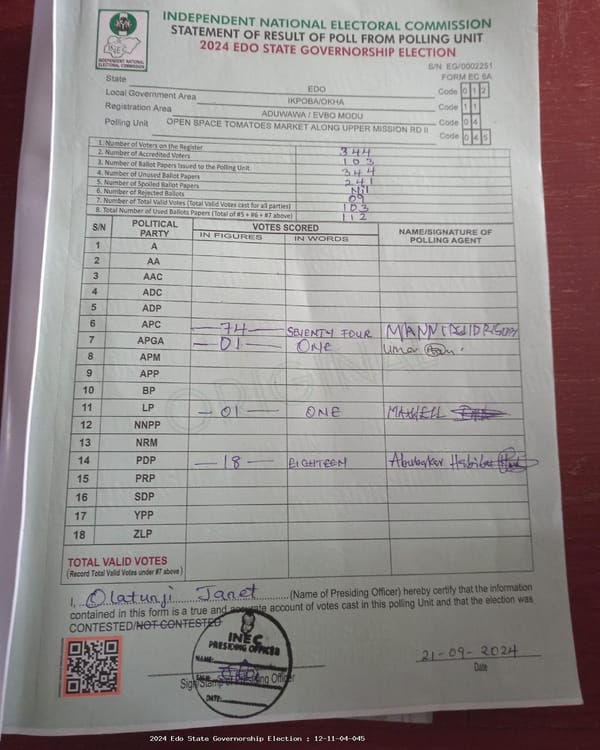 INDEPENDENT NATIONAL ELECTORAL COMMISSION
STATEMENT OF RESULT OF POLL FROM POLLING UNIT
2024 EDO STATE GOVERNORSHIP ELECTION
INEC
INDEPENDENT NATIONAL ELECTORAL COMMISSION
S/N EG/0002251
FORM EC 8A
State EDO Code 0 1 2
Local Government Area IKPOBA/OKHA Code 1 1
Registration Area ADUWAWA / EVBO MODU Code 0 4
Polling Unit OPEN SPACE TOMATOES MARKET ALONG UPPER MISSION RD II Code 0 4 5
1. Number of Voters on the Register 344
2. Number of Accredited Voters 103
3. Number of Ballot Papers Issued to the Polling Unit 344
4. Number of Unused Ballot Papers 241
5. Number of Spoiled Ballot Papers Nil
6. Number of Rejected Ballots 09
7. Number of Total Valid Votes (Total Valid Votes cast for all parties) 103
8. Total Number of Used Ballots Papers (Total of #5 + #6 + #7 above) 112
S/N POLITICAL PARTY VOTES SCORED NAME/SIGNATURE OF POLLING AGENT
IN FIGURES IN WORDS
1 A
2 AA
3 AAC
4 ADC
5 ADP
6 APC 74 SEVENTY FOUR
7 APGA 01 ONE Umar
8 APM
9 APP
10 BP
11 LP 01 ONE MAXWELL
12 NNPP
13 NRM
14 PDP 18 EIGHTEEN Abubakar
15 PRP
16 SDP
17 YPP
18 ZLP
ORIGINAL
TOTAL VALID VOTES
(Record Total Valid Votes under #7 above)
I, Olatunji Janet (Name of Presiding Officer) hereby certify that the information
contained in this form is a true and accurate account of votes cast in this polling Unit and that the election was
CONTESTED/NOT CONTESTED
INEC
PRESIDING OFFICER
NAME:
DATE:
Sign/Stamp of Presiding Officer
21-09-2024
Date
2024 Edo State Governorship Election : 12-11-04-045